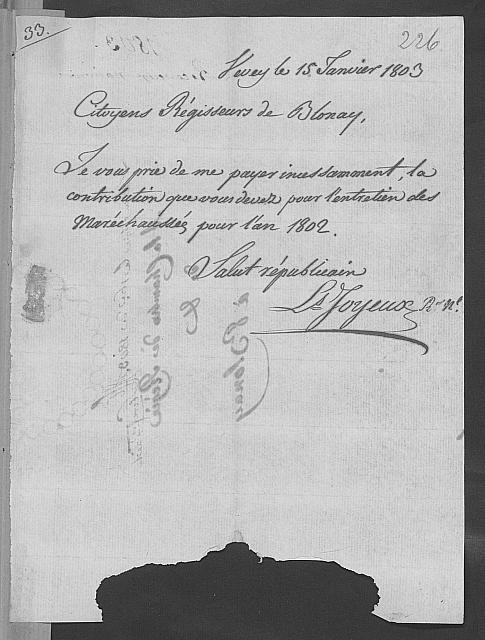 33.
226
Vevey le 15 Janvier 1803
Citoyens Régisseurs de Blonay,
Je vous prie de me payer incessamment, la
contribution que vous devez pour l'entretien des
Maréchaussées pour l'an 1802.
Salut républicain
Ls Joyeux Rr Nl.
à la Chambre de Régie
à Blonay